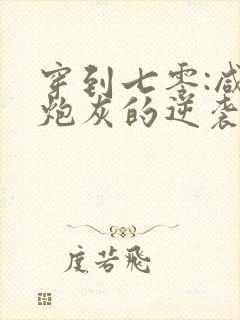 穿到七零:咸
炮灰的逆袭
度若飛